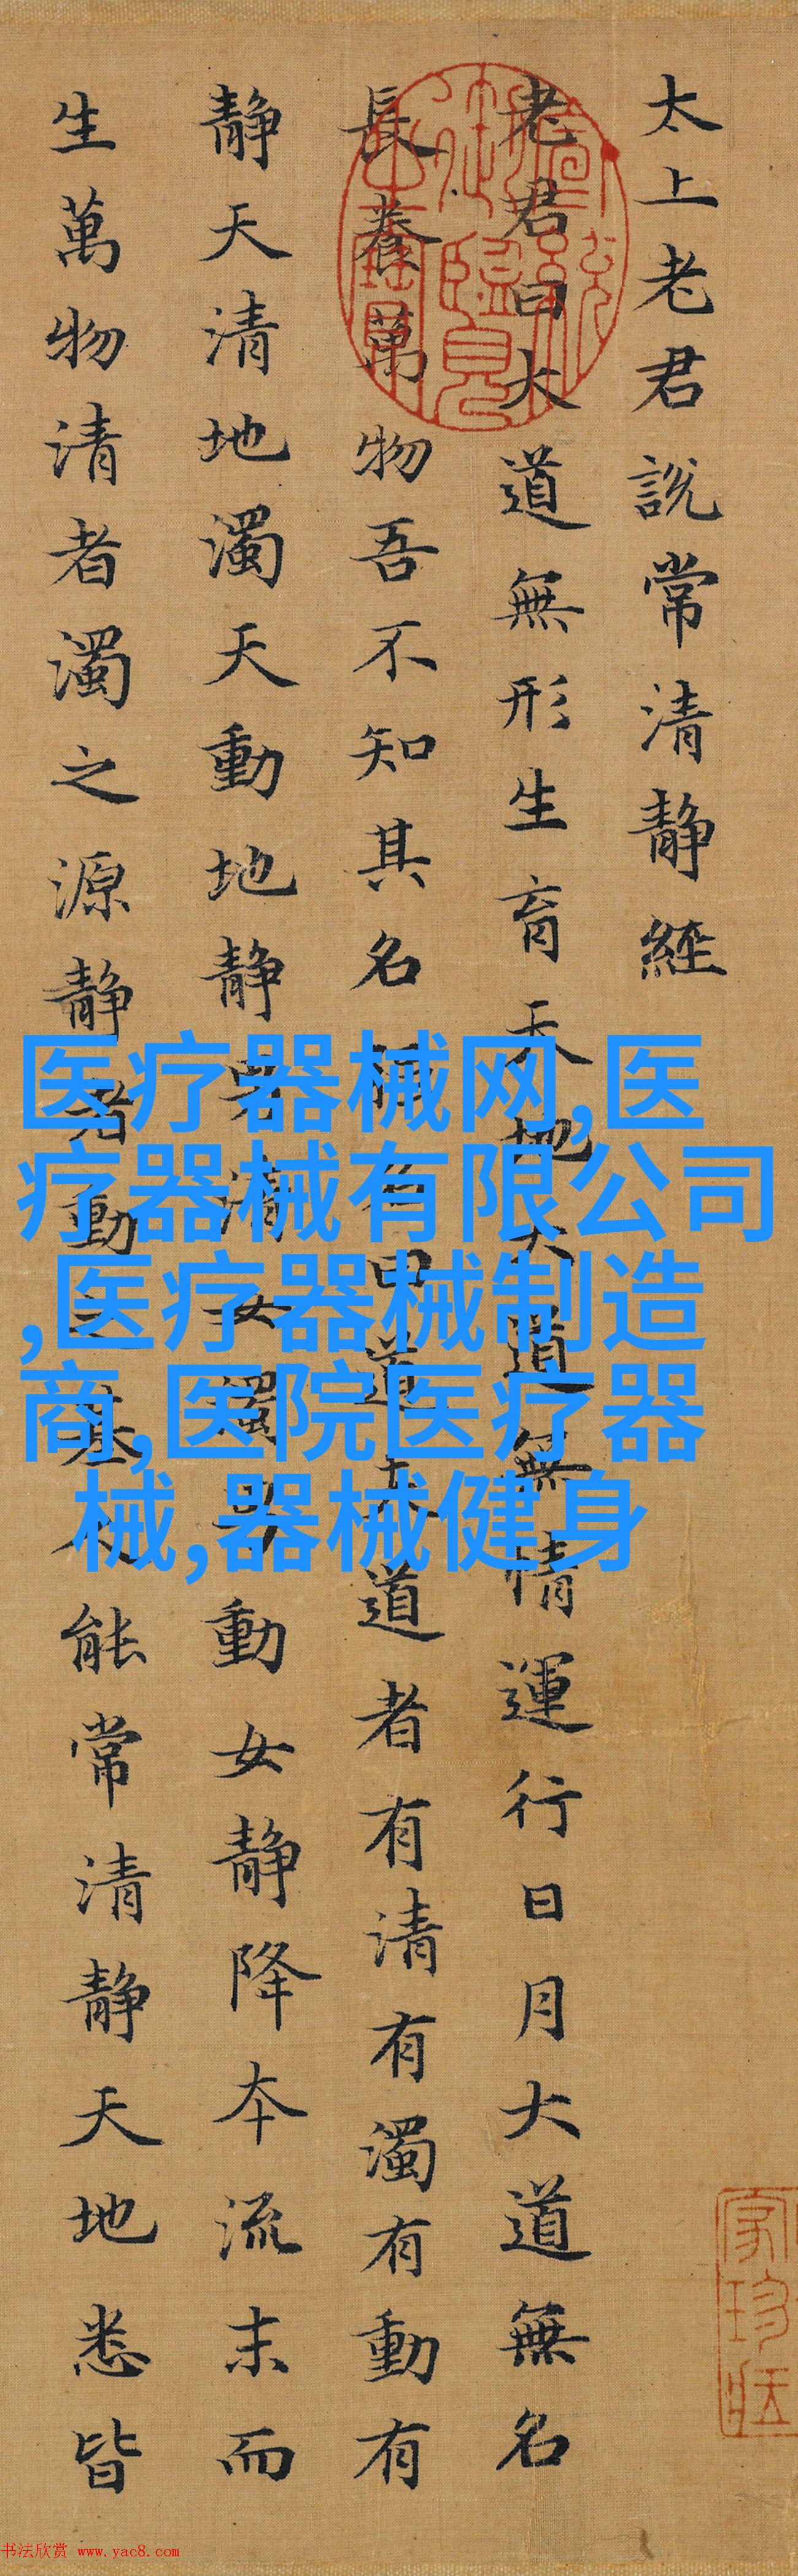 太上老君說常清靜經
老君曰大道無形生育天地大道無情運行日月大道無名
長養萬物吾不知其名 名曰道夫道者有清有濁有動有
靜天清地濁天動地靜男清女濁男動女靜降本流末而
生萬物清者濁之源靜者動之基人能常清靜天地悉皆
宣統御覽之寶
家珍
医疗器械网,医
疗器械有限公司
,医疗器械制造
商,医院医疗器
械,器械健身
书法欣赏 www.yac8.com